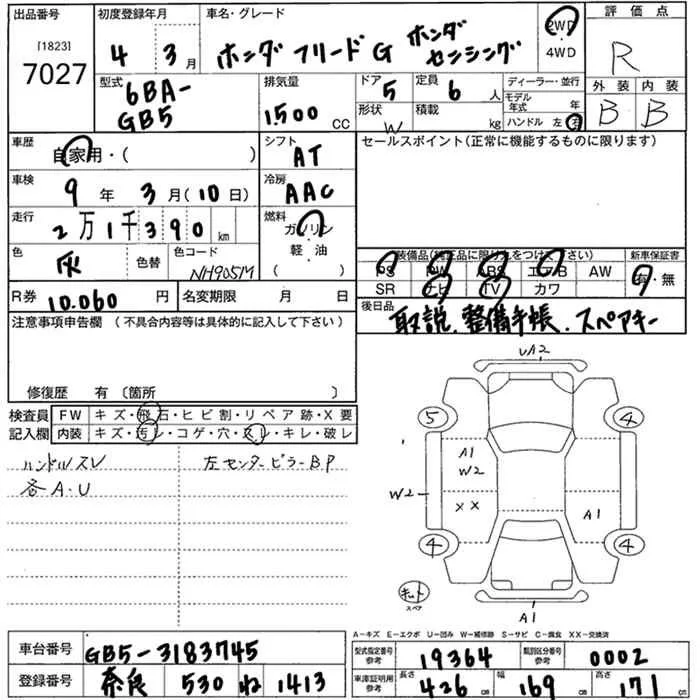 出品番号 初度登録年月 車名・グレード 評価点
[1823]
7027
4年3月
ホンダ フリード G ホンダセンシング
2WD・4WD
R
型式 6BA-GB5
排気量 1500 CC
ドア 5
形状 W
定員 6 人
積載 kg
ディーラー・並行
モデル年式 年
ハンドル 左・右
外装 内装
B B
車歴 自家用・( )
シフト AT
セールスポイント(正常に機能するものに限ります)
車検 9年 3月(10日)
冷房 AAC
走行 2万1千390km
燃料 ガソリン 軽・油 ( )
色 灰 色替 色コード NH905M
装備品(純正品に限り○をつけて下さい) 新車保証書
PS PW ABS エアB AW 有・無
SR ナビ TV カワ
R券 10.060円 名変期限 月 日
後日品 取説、整備手帳、スペアキー
注意事項申告欄 (不具合内容等は具体的に記入して下さい)
修復歴 有〔箇所 〕
検査員記入欄
FW キズ・飛石・ヒビ割・リペア跡・X要
内装 キズ・汚レ・コゲ・穴・スレ・キレ・破レ
ハンドルスレ 左センターピラーBP
各A・U
UA2
5 4
A1
W2
W2 XX A1
4 4
スペア
A1
A-キズ E-エクボ U-凹み W-補修跡 S-サビ C-腐食 XX-交換済
車台番号 GB5-3183745
型式指定番号 参考 19364 類別区分番号 参考 0002
登録番号 奈良 530 ね 1413
車庫証明用 参考 長さ 426 cm 幅 169 cm 高さ 171 cm